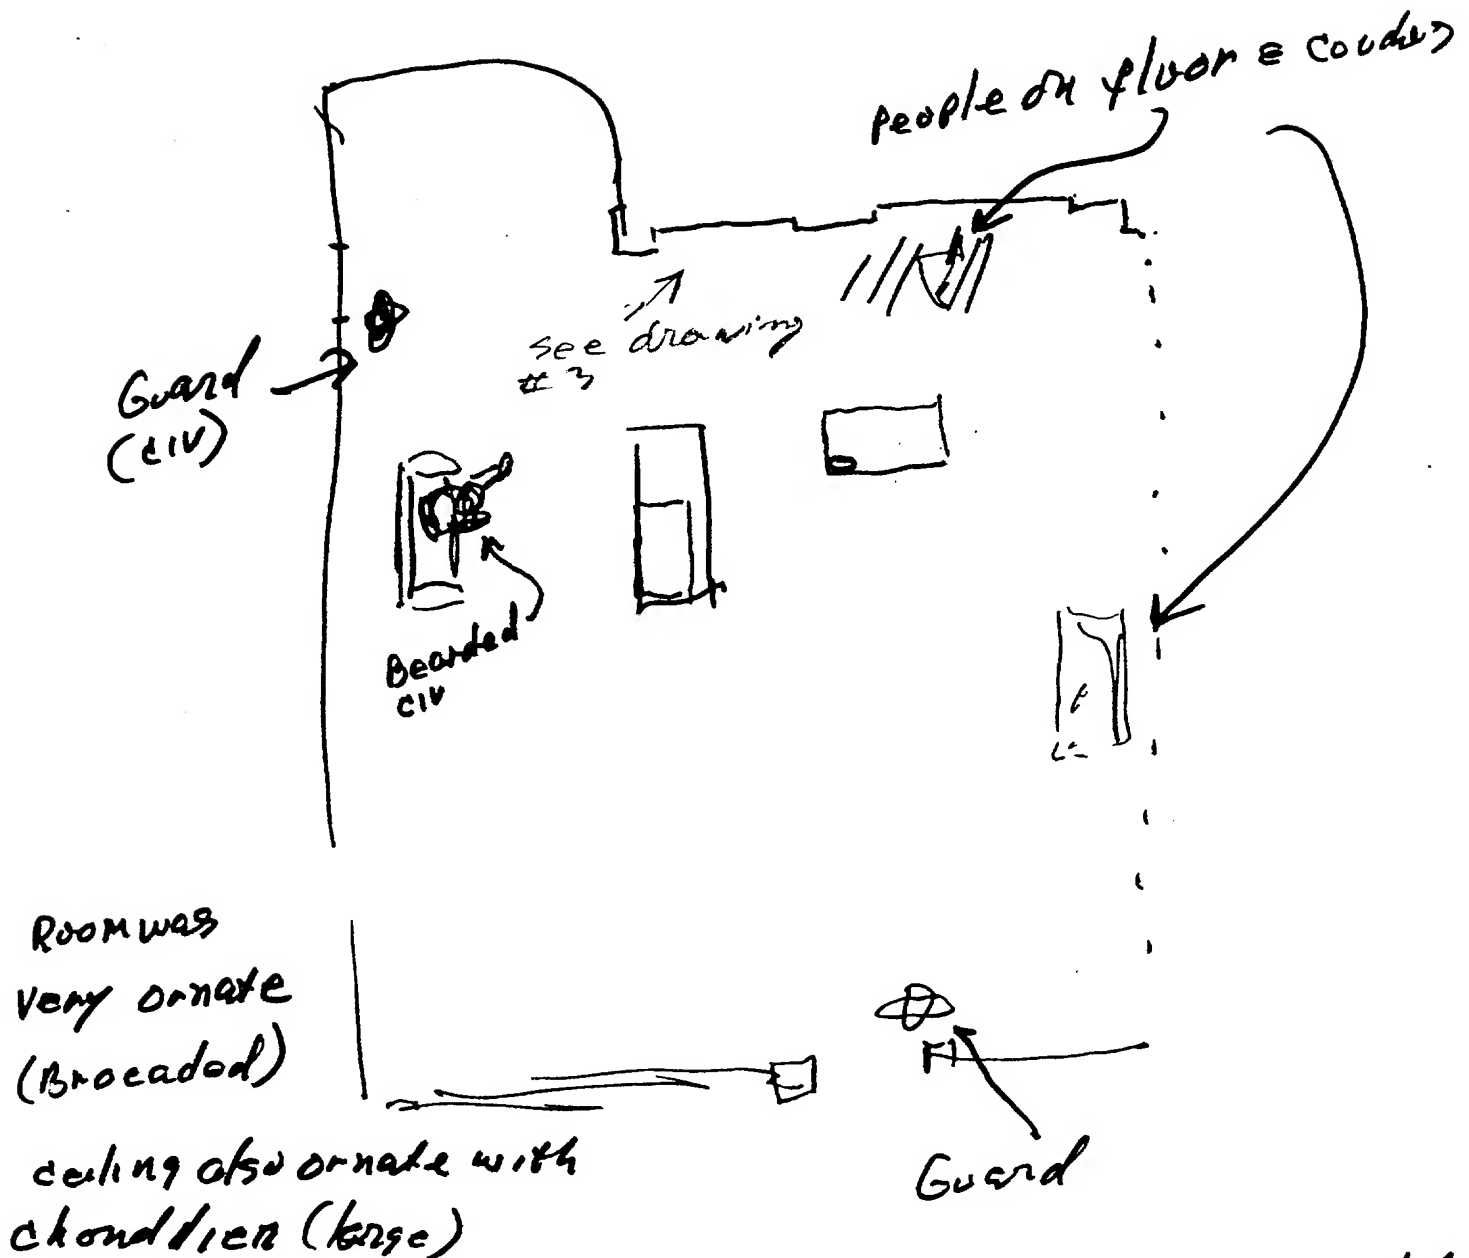 People on floor & couches
see drawing
#3
Guard
(civ)
Bearded
civ
Room was
very ornate
(Brocaded)
ceiling also ornate with
chonddier (large)
Guard